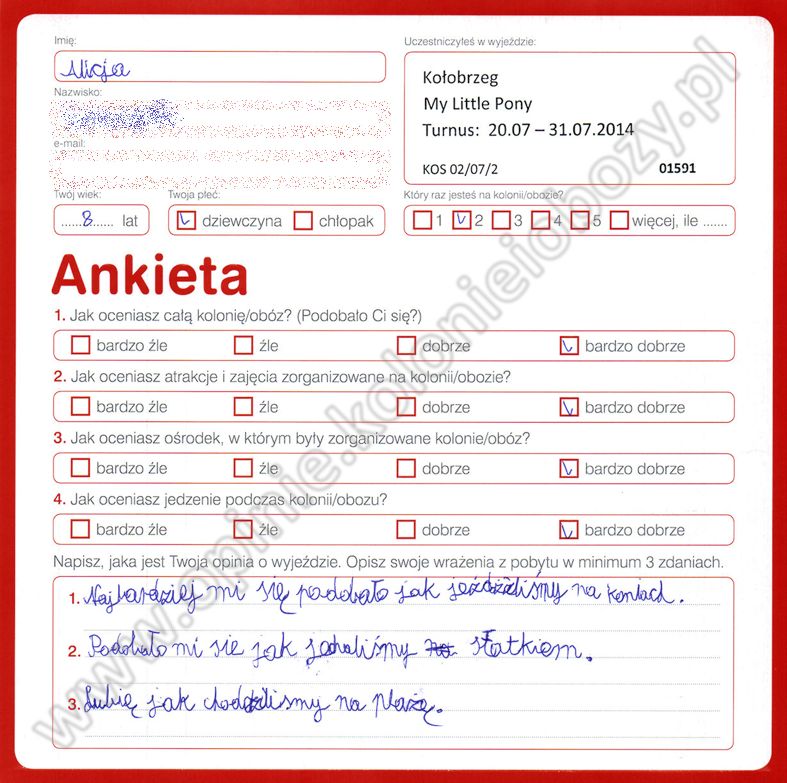 Imię:
Uczestniczyłeś w wyjeździe:
Alicja
Kołobrzeg
My Little Pony
Turnus: 20.07 – 31.07.2014
KOS 02/07/2 01591
Nazwisko:
e-mail:
Twój wiek:
Twoja płeć:
Który raz jesteś na kolonii/obozie?
......8...... lat
dziewczyna chłopak
1 2 3 4 5 więcej, ile .......
Ankieta
1. Jak oceniasz całą kolonię/obóz? (Podobało Ci się?)
bardzo źle źle dobrze bardzo dobrze
2. Jak oceniasz atrakcje i zajęcia zorganizowane na kolonii/obozie?
bardzo źle źle dobrze bardzo dobrze
3. Jak oceniasz ośrodek, w którym były zorganizowane kolonie/obóz?
bardzo źle źle dobrze bardzo dobrze
4. Jak oceniasz jedzenie podczas kolonii/obozu?
bardzo źle źle dobrze bardzo dobrze
Napisz, jaka jest Twoja opinia o wyjeździe. Opisz swoje wrażenia z pobytu w minimum 3 zdaniach.
1. Najbardziej mi się podobało jak jeździliśmy na koniach.
2. Podobało mi sie jak jechaliśmy statkiem.
3. Lubię jak chodziliśmy na plażę.
www.opinie.kolonieiobozy.pl